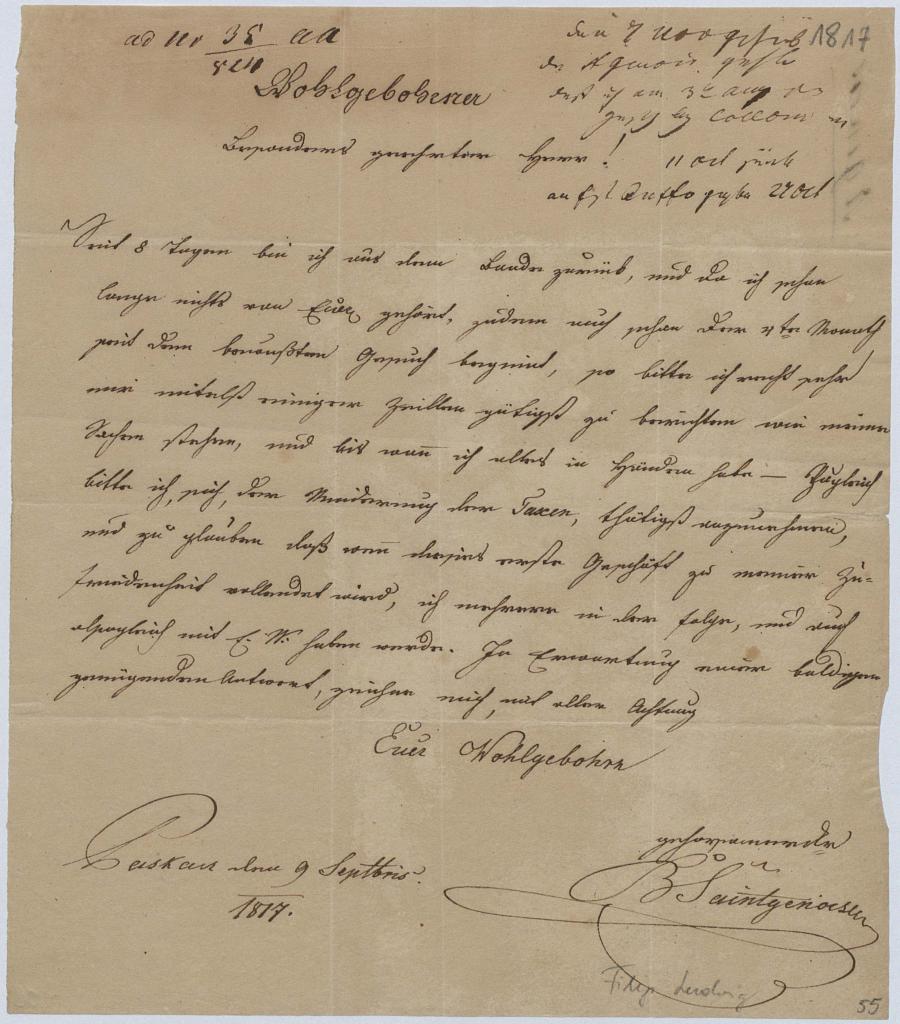 ad nr 35 aa
524
1817
Wohlgebohrner
Besonders geehrter Herr!
11 oct
22 Oct
Seit 8 Tagen bin ich aus dem Bande zurük, und da ich schon
lange nichts von Euer gehört, zudem auch schon der 4te Monath
seit dem bewußten Gesuch beginnt, so bitte ich recht sehr
mir mitelst einiger Zeillen gütigst zu berichten wie meine
Sachen stehen, und bis wann ich alles in Händen habe — Zugleich
bitte ich, sich der Minderung der Taxen, thätigst anzunehmen,
und zu glauben daß wenn dieses erste Geschäft zu meiner Zu-
friedenheit vollendet wird, ich mehrere in der Folge, und auch
alsogleich mit E. W. haben werde. In Erwartung einer baldigen
genügenden Antwort, zeichne mich mit aller Achtung
Euer Wohlgebohrn
Paskau den 9 Septbris.
1817.
gehorsamerdr
B Saintgenois
Filip Ludwig
55